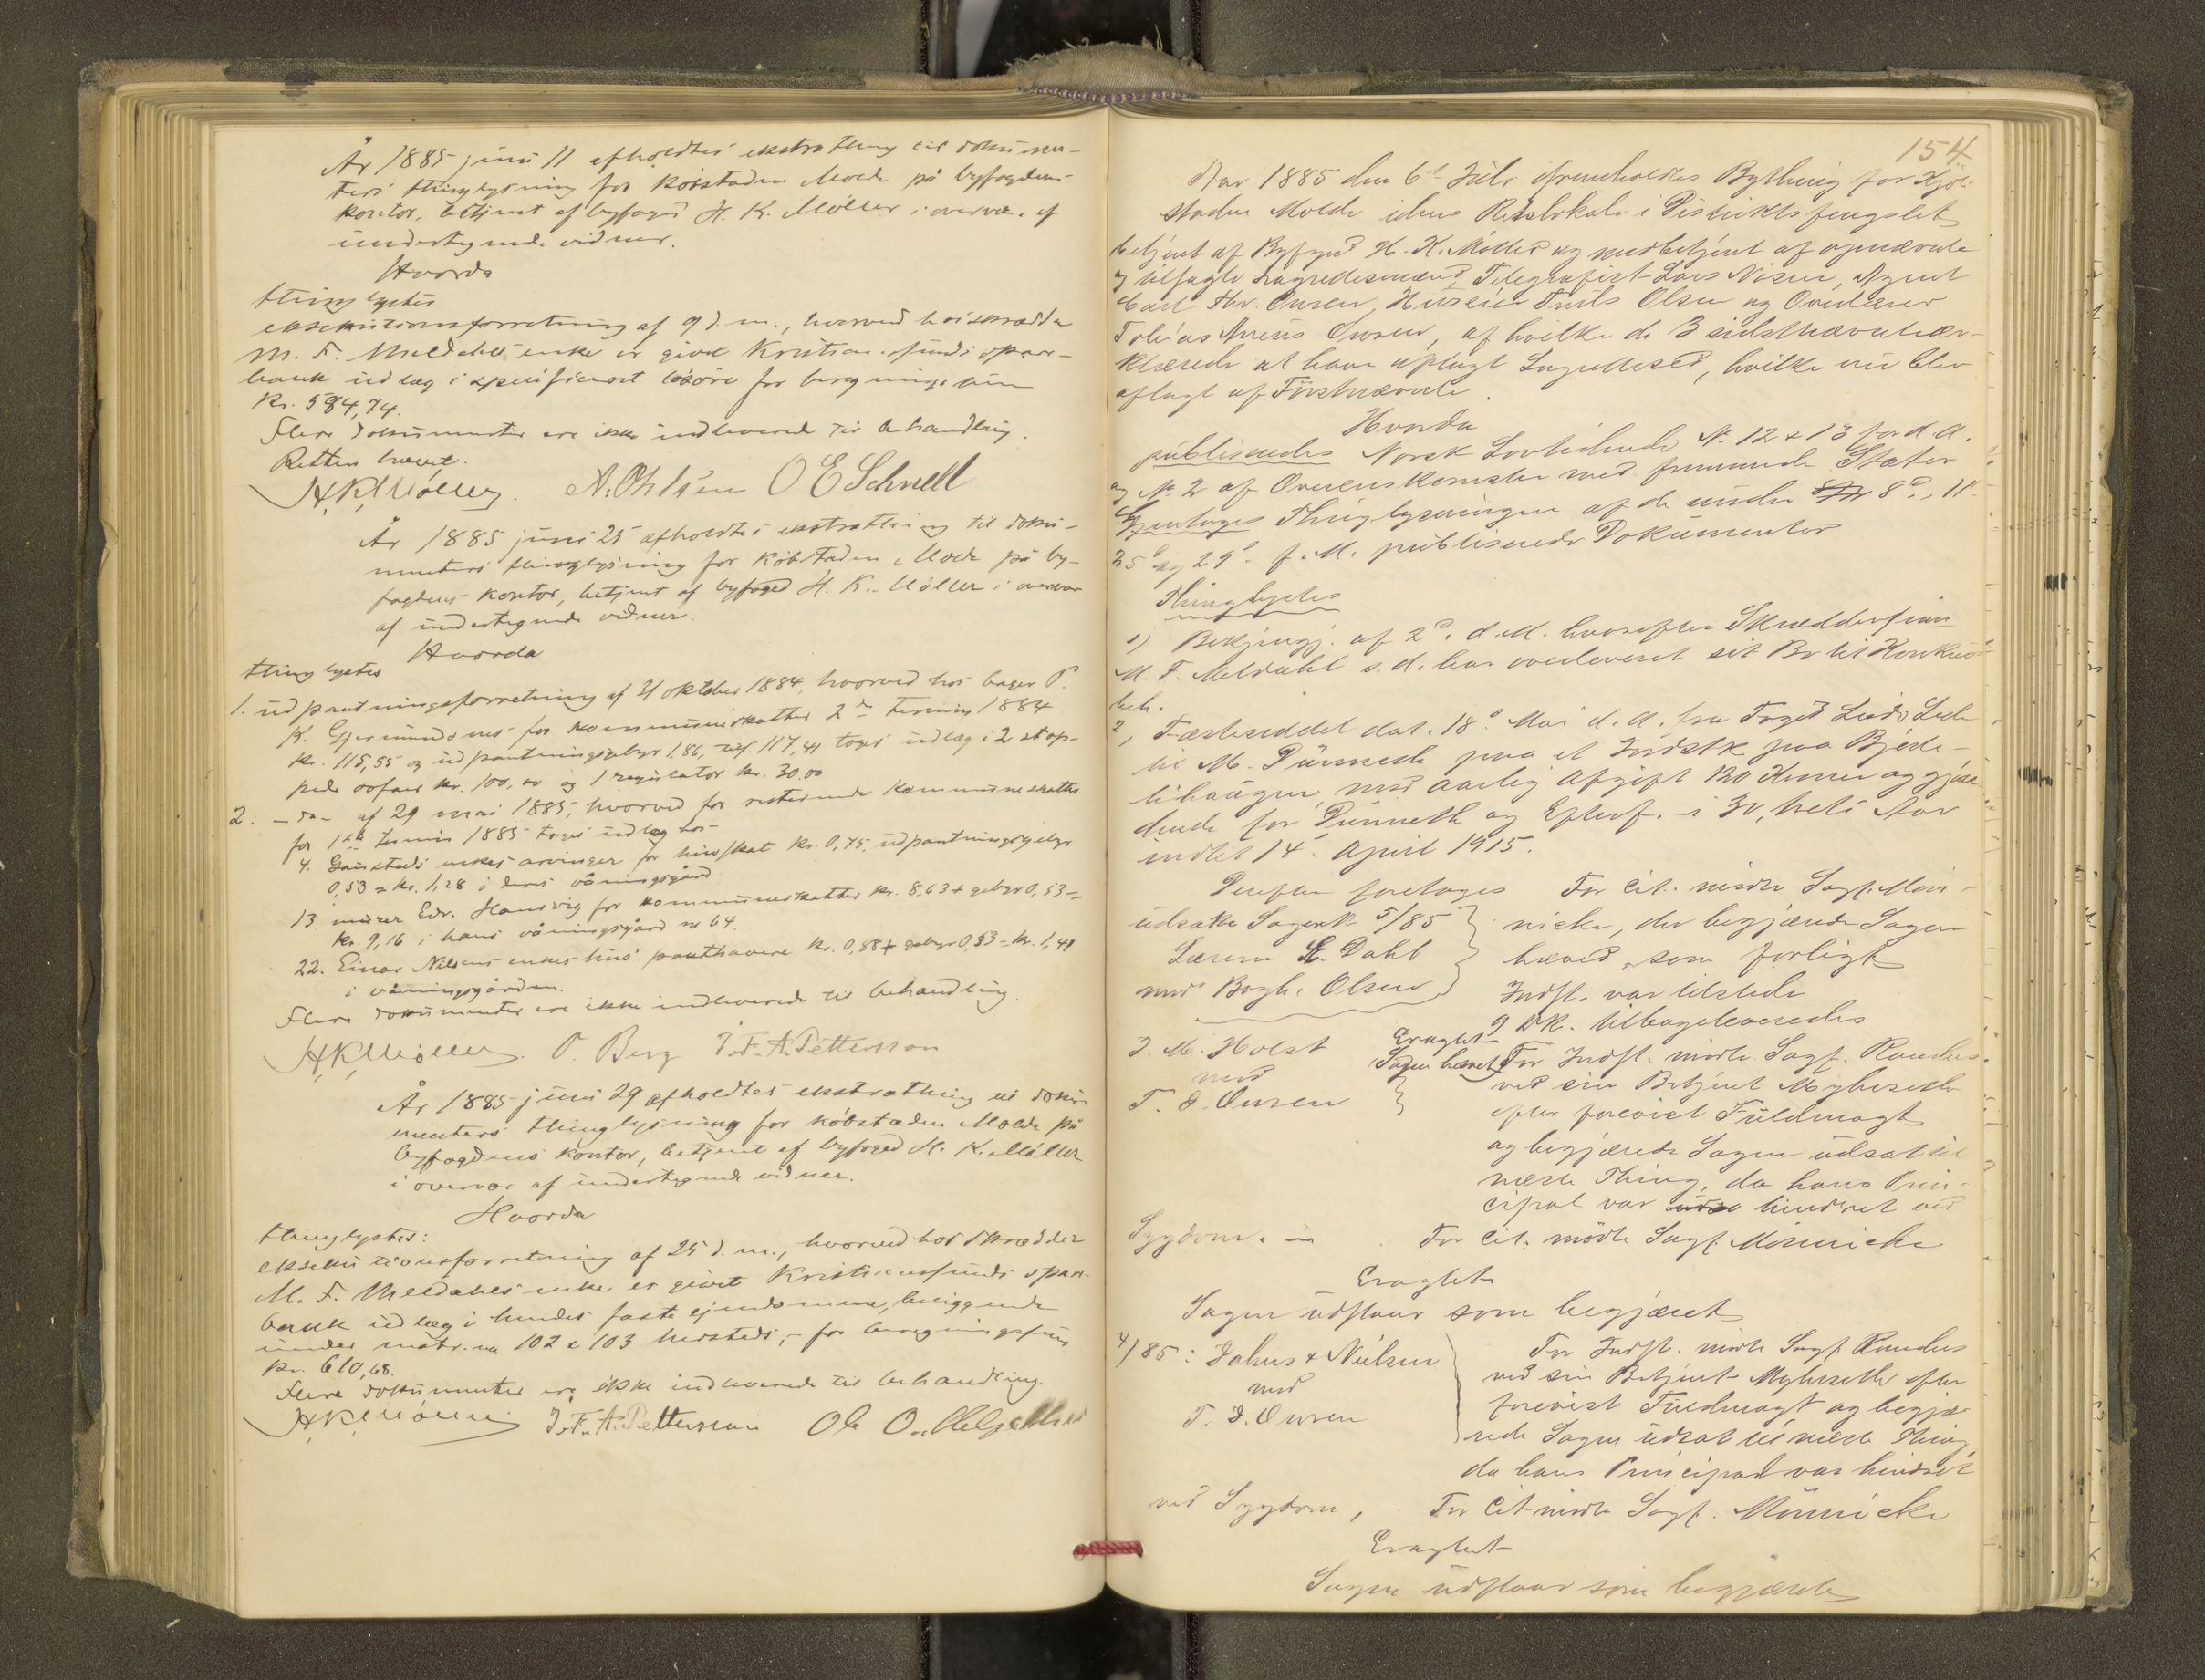 År 1885 juni 11 afholdtes ekstrathing til dokumen-
ters thinglysning for købstaden Molde på byfogdens
kontor, betjent af byfoged H. K. Møller i overvær af
undertegnede vidner.
Hvorda
thinglystes
eksekutionsforretning af 9 d. m., hvorved hos skrædder
M. F. Meldahls enke er givet Kristiansunds spare-
bank udlæg i specificeret løsøre for beregningssum
kr. 584,74.
Flere dokumenter ere ikke indleverede til behandling.
Retten hævet.
H.K.Møller. A. Ohlsen O E Schnell
År 1885 juni 25 afholdtes ekstrathing til doku-
menters thinglysning for købstaden Molde på by-
fogdens kontor, betjent af byfoged H. K. Møller i overvær
af undertegnede vidner.
Hvorda
thinglystes
1. udpantningsforretning af 31 oktober 1884, hvorved hos bager P.
K. Gjermundsnes for kommuneskatter 2den termin 1884
kr. 115,55 og udpantningsgebyr 1,86, 117,41 toges udlæg i 2 stop-
pede sofaer kr. 100,00 og 1 regulator kr. 30.00
2. - do - af 29 mai 1885, hvorved for resterende kommuneskatter
for 1ste termin 1885 toges udlæg hos
4. enkes arvinger for husskat kr. 0,75, udpantningsgebyr
0,53 = kr. 1,28 i deres våningsgård
13 murer Edv. Hansvig for kommuneskatter kr. 8,63 + gebyr 0,53 =
kr. 9,16 i hans våningsgård no 64.
22. Einar Nilsens enkes hus' panthavere kr. 0,88 + gebyr 0,53 = kr. 1,41
i våningsgården.
Flere dokumenter ere ikke indleverede til behandling.
H.K.Møller. P. Berg J.F.A. Pettersson
År 1885 juni 29 afholdtes ekstrathing til doku-
menters thinglysning for købstaden Molde på
byfogdens kontor, betjent af byfoged H. K. Møller
i overvær af undertegnede vidner.
Hvorda
thinglystes:
eksekutionsforretning af 25 d. m., hvorved hos skrædder
M. F. Meldahls enke er givet Kristiansunds spare-
bank udlæg i hendes faste ejendomme, beliggende
under matr. no 102 & 103 hersteds, for beregningssum
kr. 610,68.
Flere dokumenter ere ikke indleverede til behandling.
H.K.Møller J.F.A. Pettersson Ole O.
154
Aar 1885 den 6te Juli fremholdtes Bything for Kjøb-
staden Molde i dens Retslokale i Distriktsfengslet
betjent af Byfoged H. K. Møller og medbetjent af opnævnte
og tilsagte Lagrettesmænd Telegrafist Lars Nisen, Agent
Carl Chr. Owren, Truls Olsen og Overlærer
Tobias Owren, af hvilke de 3 sidstnævnte er-
klærede at have aflagt Lagretteséd, hvilke nu blev
aflagt af Førstnævnte.
Hvorda
publiseredes Norsk Lovtidende No 12 & 13 for d. A.
og No 2 af Overenskomster med fremmede Stater
Gjentoges Thinglysningen af de under 8de, 11te
25de og 29de f. M. publiserede Dokumenter
Thinglystes
1) Bekjendtgj. af 2den d. M. hvorefter Skrædderfirm
M. F. Meldahl s. d. har overleveret sit Bo til Konkurs-
beh.
2, Fæsteseddel dat. 18de Mai d. A. fra Foged
til M. Dünneth paa et Jordstk paa Bjerke-
lihaugen, mod aarlig Afgift 120 Kroner og gjæl-
dende for Dünneth og Efterf. i 30, treti Aar
indtil 14de April 1915.
Derefter foretoges
udsatte Sager No 5/85
Lærerin Dahl
mod Bagh. Olsen
For Cit. mødte Sagf. Mön-
nicke, der begjærede Sagen
hævet, som forligt
Indst. var tilstede
9 Dk. tilbageleveredes
Eragtet
Sagen hævet
J. M. Holst
mod
T. J. Owren
For Indst. mødte Sagf. Randers
ved sin Betjent Myhrsæther
efter forevist Fuldmagt
og begjærede Sagen udsat til
næste Thing, da hans Prin-
cipal var hindret ved
Sygdom. — For Cit. mødte Sagf. Mönnicke
Eragtet
Sagen udstaar som begjæret
4/85: Jahns & Nielsen
mod
T. J. Owren
For Indst. mødte Sagf. Randers
ved sin Betjent Myhrsæther efter
forevist Fuldmagt og begjæ-
rede Sagen udsat til næste Thing,
da hans Principal var hindret
ved Sygdom, For Cit mødte Sagf. Mönnicke
Eragtet
Sagen udstaar som begjæret